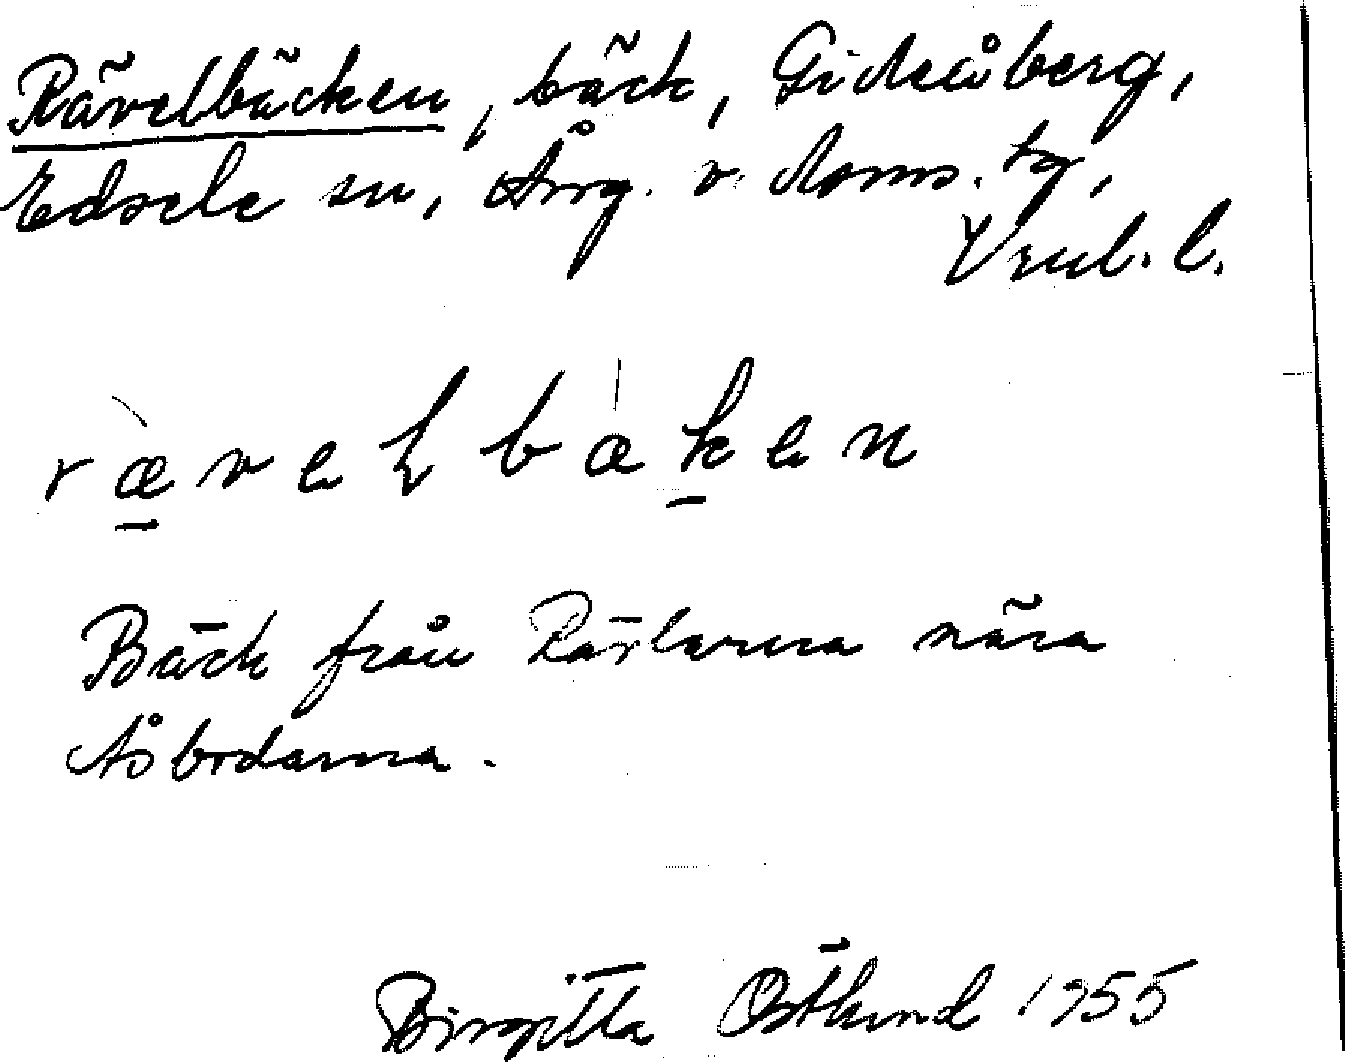 Rävelbäcken, bäck, Gideåberg,
Edsele sn, Ång. v. doms. tg,
Vnl. l.
rævelbæken
Bäck från Rävlarna nära
Åsbodarna.
Birgitta Östlund 1955